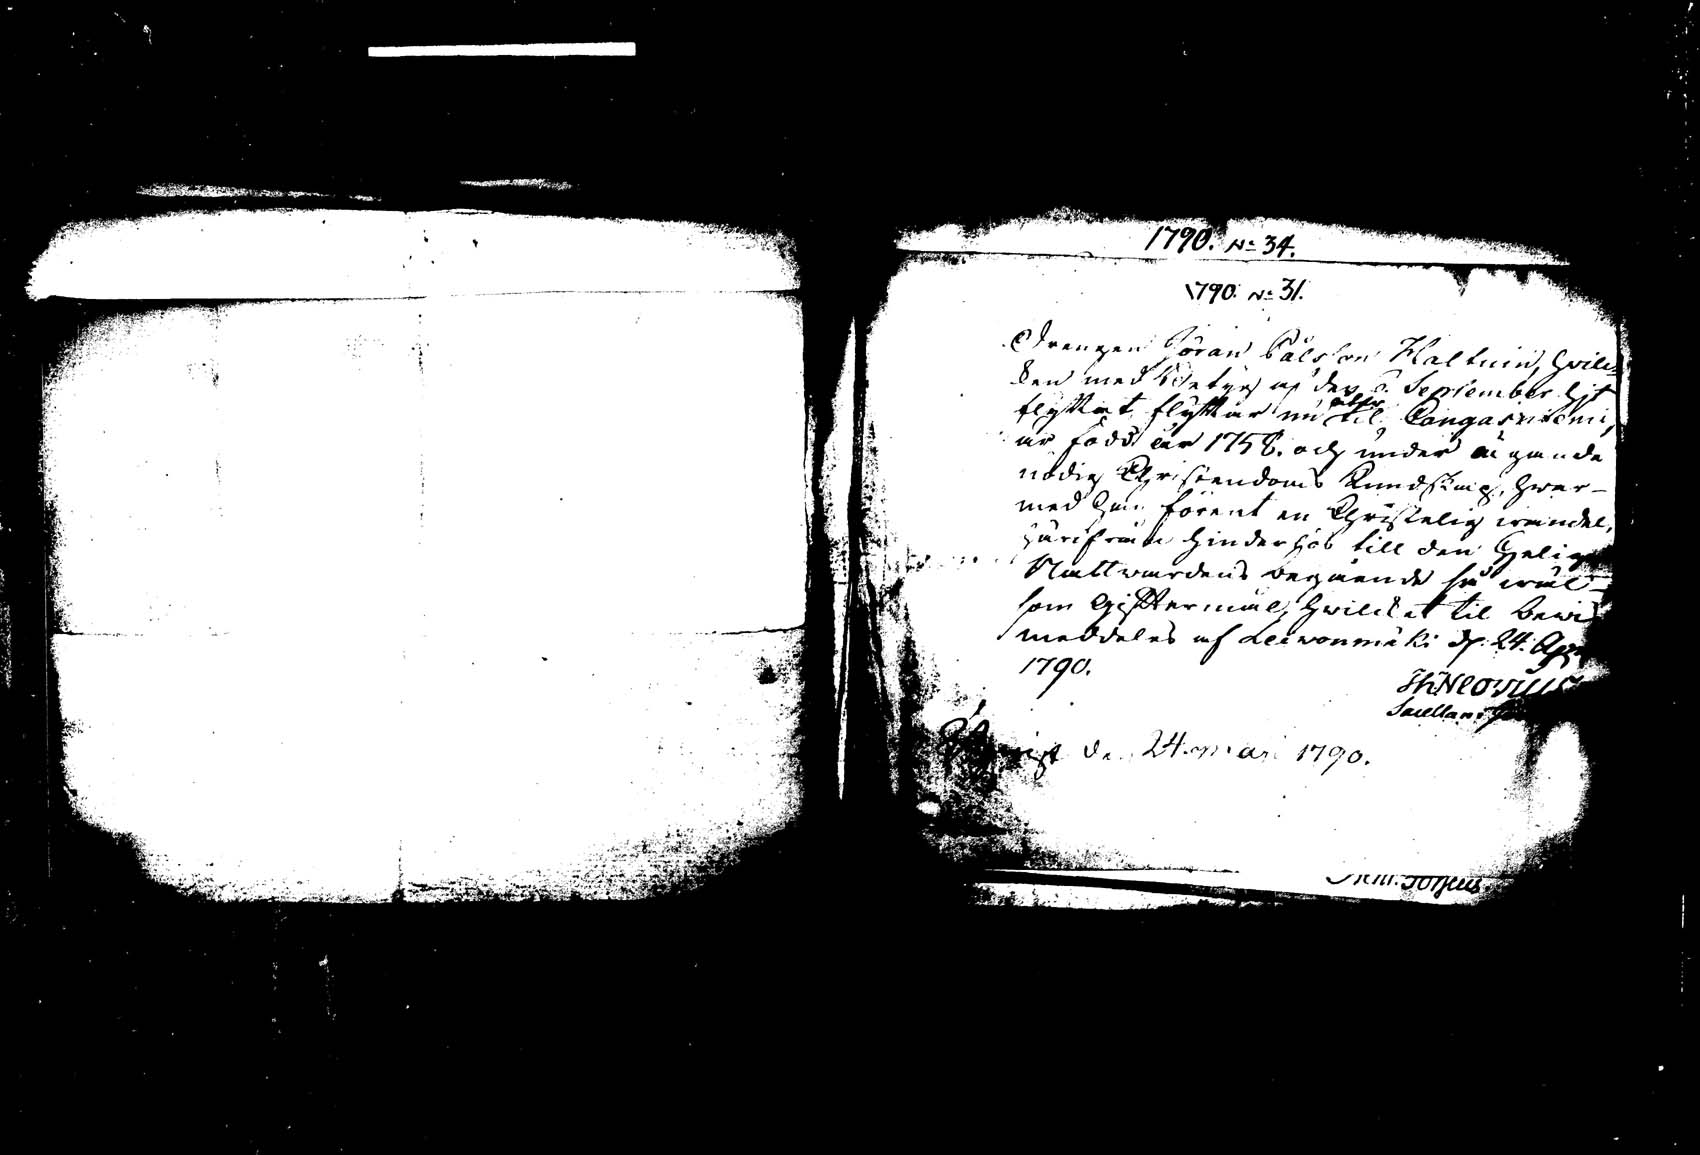 1790. No 34.
1790. No 31.
Drengen Göran Pålsson Haltuin, hvil-
ken med Betyg af den 6. September hit
flyttat, flyttar nu åter til Cangasniemi,
är född år 1758. och under ägande
nödig Christendoms Kundskap, hwar-
med han förent en Christelig wandel,
härifrån hinderslös till den Helige
Nattwardens begående så wäl
som Gifftermål, hwilket til bewis
meddeles af Leivonmäki d. 24. Apr
1790.
Neovius
Sacellan:
den 24. Maji 1790.